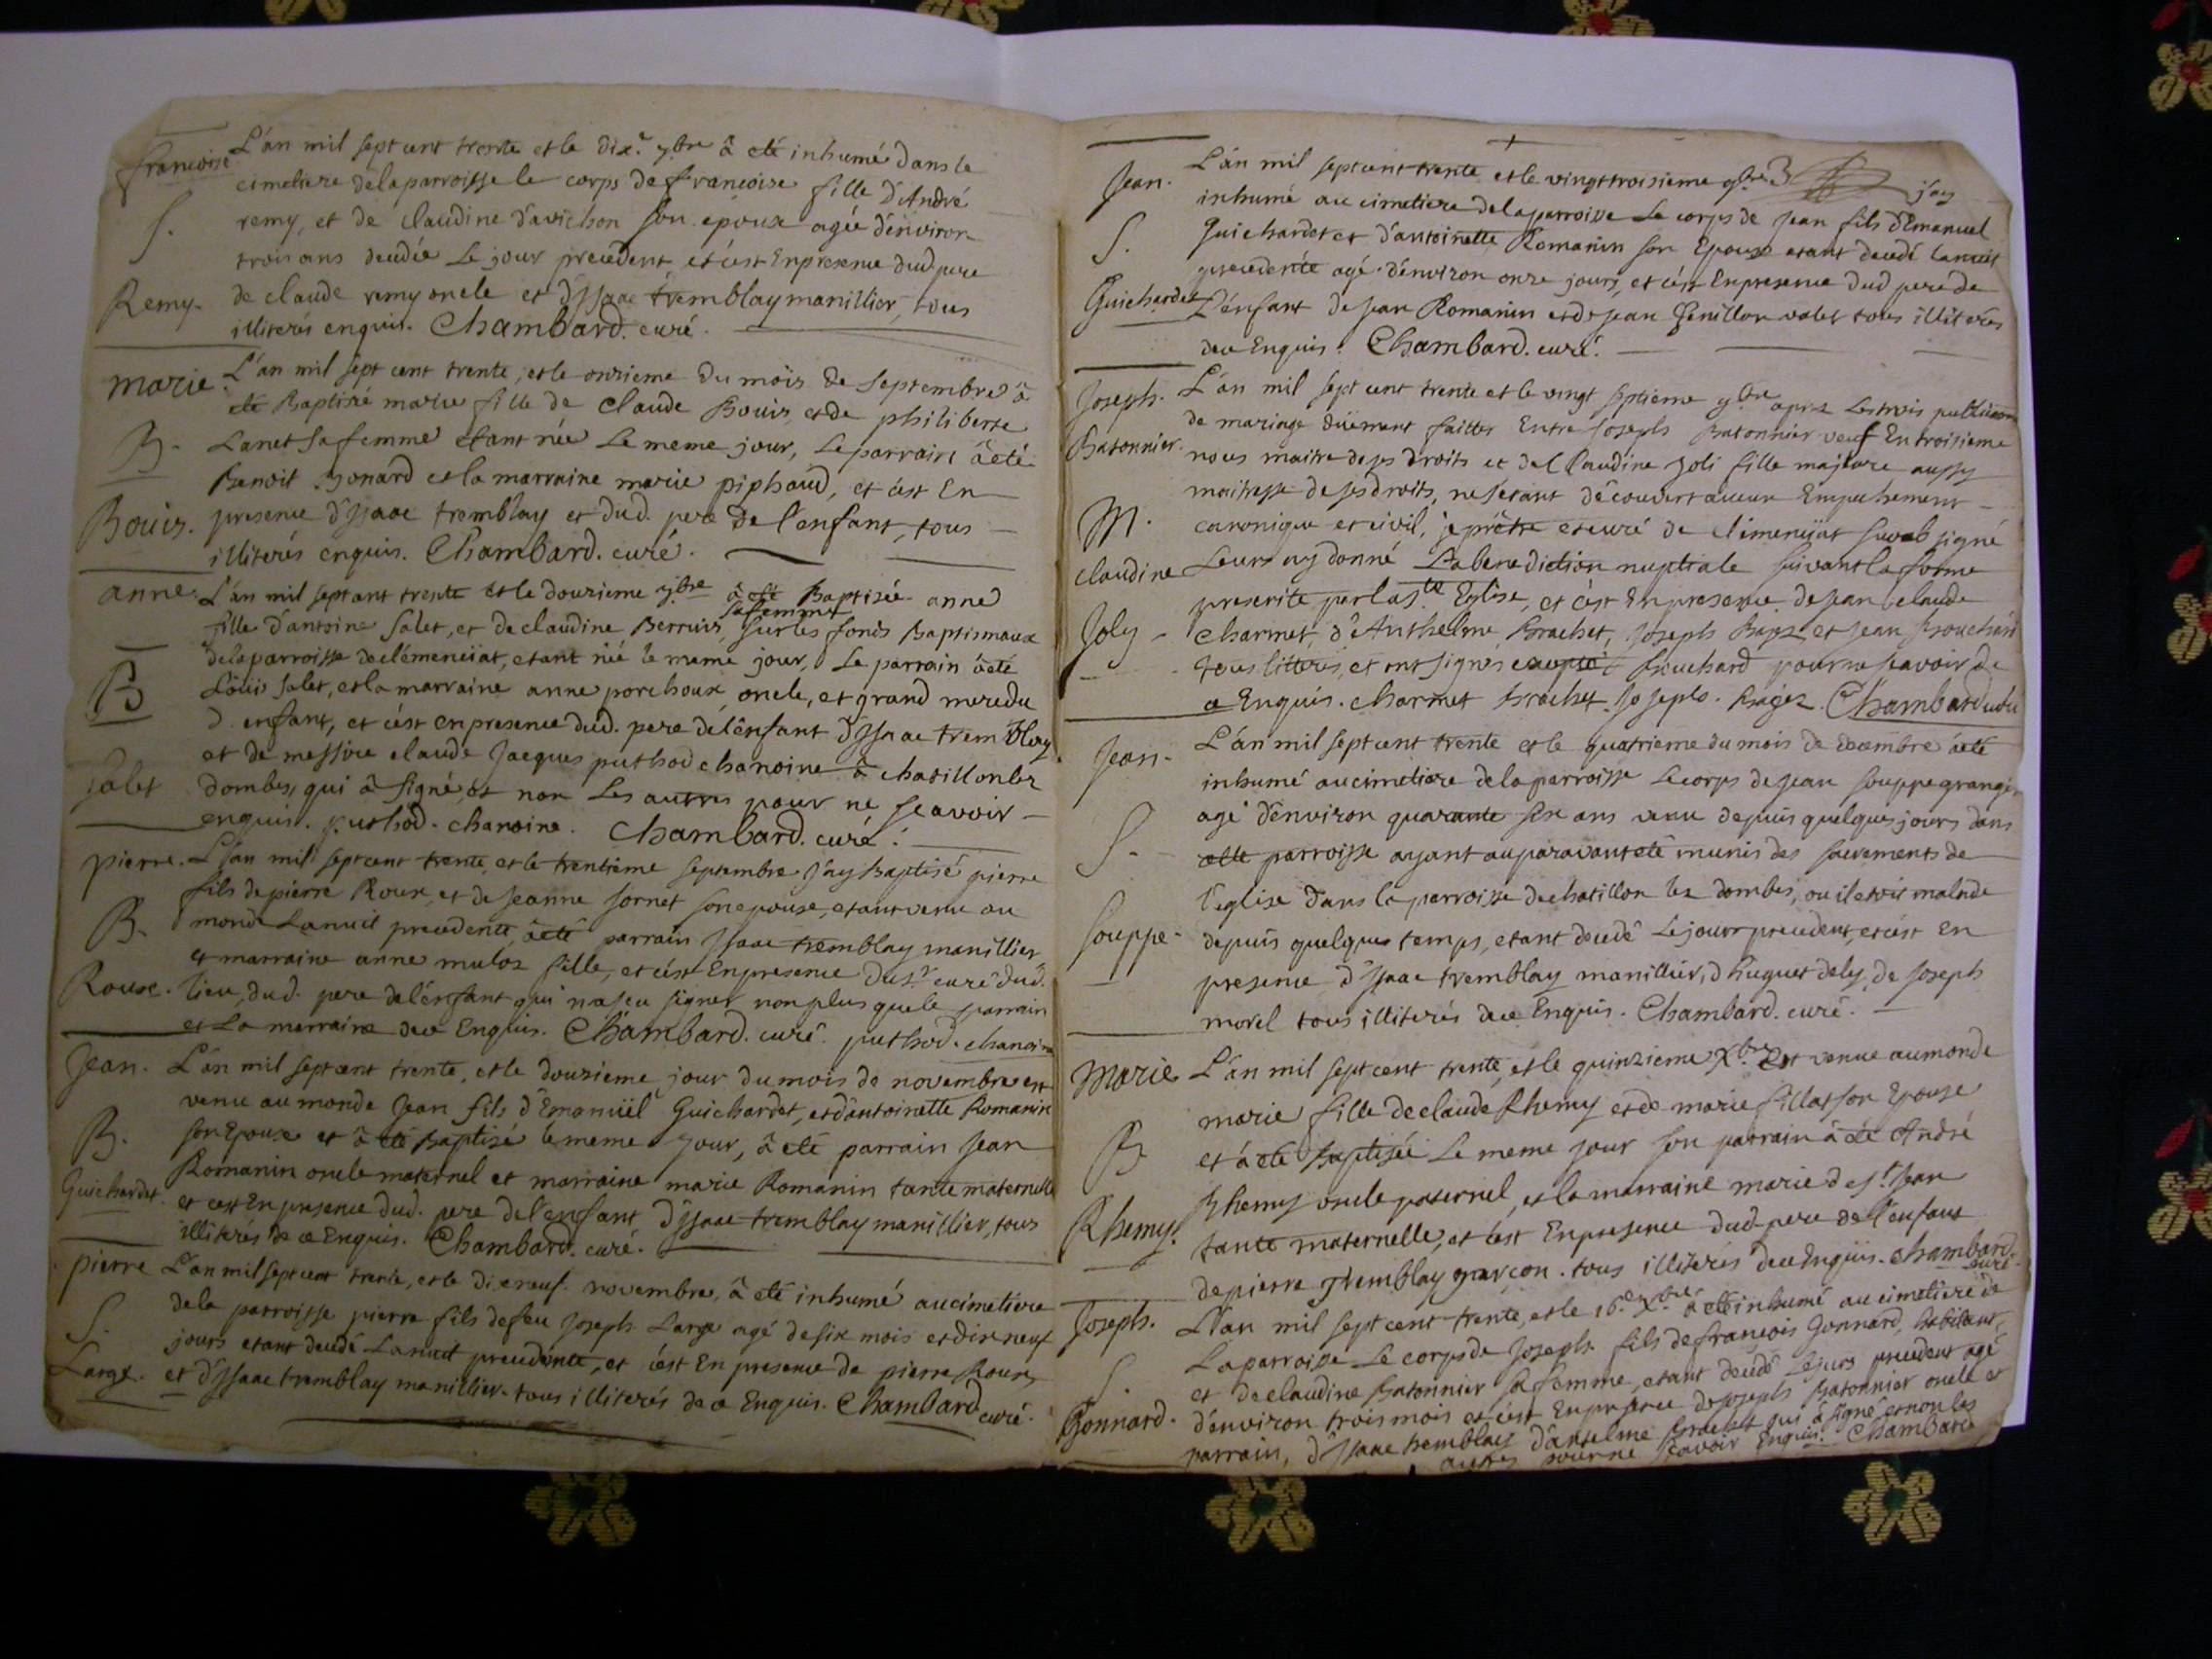 francoise
S.
Remy.
L'an mil sept cent trente et le dix.e 7bre â eté inhumé dans le
cimetiere de la parroisse le corps de francoise fille d'André
remy, et de claudine davichon son epouse agée d'environ
trois ans decedée le jour precedent et c'est En presence dud pere
de claude remy oncle et d'Isaac tremblay manillier, tous
illiterés enquis. Chambard. curé.
marie
B.
Bouis.
L'an mil sept cent trente, et le onzieme du mois de Septembre â
eté Baptisé marie fille de Claude Bouis, et de philiberte
Lanet sa femme etant née Le meme jour, Le parrain â eté
Benoit Bonard et la marraine marie piphaud, et c'est En
presence d'Isaac tremblay et dud. pere de l'enfant, tous
illiterés enquis. Chambard. curé.
anne.
B
Salet
L'an mil sept cent trente et le douzieme 7bre â eté Baptisée anne
sa femme
fille d'antoine Salet, et de claudine Berruis, sur les fonds Baptismaux
de la parroisse de clémenciat, etant née le meme jour, Le parrain â eté
Loüis Salet, et la marraine anne porchoux, oncle, et grand mere du
d. enfant, et c'est en presence dud. pere de l'enfant d'Isaac tremblay
et de messire claude Jacques puthod chanoine â chatillon lez
dombes, qui â signé, et non Les autres pour ne scavoir
enquis. puthod. chanoine. Chambard. curé.
pierre.
B.
Roux.
L'an mil sept cent trente, et le trentieme septembre J'ay Baptisé pierre
fils de pierre Roux, et de Jeanne Sornet son epouse, etant venu au
monde La nuit precedente, â eté parrain Isaac tremblay manillier
et marraine anne muloz fille, et c'est En presence du sr. curé dud.
lieu, dud. pere de l'enfant qui n'a sceu signer non plus que le parrain
et La marraine de ce Enquis. Chambard. curé. puthod. chanoine
Jean.
B.
Guichardet.
L'an mil sept cent trente, et le douzieme jour du mois de novembre est
venu au monde Jean fils d'Emanüel Guichardet, et d'antoinette Romanin
son Epouse et â eté Baptisé le meme Jour, â eté parrain Jean
Romanin oncle maternel et marraine marie Romanin tante maternelle
et c'est En presence dud. pere de l'enfant d'Isaac tremblay manillier, tous
illiterés de ce Enquis. Chambard. curé.
pierre
S.
Large.
L'an mil sept cent trente, et le dixneuf novembre, â eté inhumé au cimetiere
de la parroisse pierre fils de feu Joseph Large agé de six mois et dixneuf
jours etant decedé La nuit precedente, et c'est En presence de pierre Roux,
et d'Isaac tremblay manillier. tous illiterés de ce Enquis. Chambard curé.
Jean.
S.
Guichardet
L'an mil sept cent trente et le vingt troisieme 9bre j'ay
inhumé au cimetiere de la parroisse Le corps de Jean fils d'Emanuel
Guichardet et d'antoinette Romanin son Epouse etant decedé la nuit
precedente agé d'environ onze jours, et c'est En presence dud pere de
L'enfant de Jean Romanin et de Jean Genillon valet tous illiterés
de ce Enquis. Chambard. curé.
Joseph.
Batonnier.
M.
claudine
Joly
L'an mil sept cent trente et le vingt septieme 9bre aprez Les trois publications
de mariage düement faittes Entre Joseph Batonnier veuf En troisieme
noces maitre de ses droits et de Claudine Joli fille majeure aussy
maitresse de ses droits, ne s'etant découvert aucun Empechement
canonique et civil, je prètre et curé de clémenciat sousigné
Leurs ay donné La benediction nuptiale suivant la forme
prescrite par la ste. Eglise, et c'est En presence de Jean claude
Charmet, d'Anthelme Brachet, Joseph Bages et Jean Brouchard
tous litterés, et ont signés excepté Brouchard pour ne scavoir de
ce Enquis. charmet brachet. Joseph. Bages. Chambard curé
Jean.
S.
Souppe.
L'an mil sept cent trente et le quatrieme du mois de decembre â eté
inhumé au cimetiere de la parroisse Le corps de Jean Souppe granger
agé d'environ quarante six ans venu depuis quelques jours dans
cette parroisse ayant auparavant eté munis des sacrements de
l'eglise dans la parroisse de chatillon lez dombes, ou il etoit malade
depuis quelque temps, etant decedé Le jour precedent, et c'est En
presence d'Isaac tremblay manillier, d'huguet dely, de Joseph
morel tous illiterés de ce Enquis. Chambard. curé.
Marie
B
Rhemy.
L'an mil sept cent trente, et le quinzieme Xbre Est venue au monde
marie fille de claude Rhemy et de marie fillat son Epouse
et â eté Baptisée Le meme jour son parrain â eté André
Rhemy oncle paternel, et la marraine marie de st. Jean
tante maternelle, et c'est En presence dud pere de l'enfant
de pierre tremblay garçon. tous illiterés de ce Enquis. chambard.
curé
Joseph.
S.
Gonnard.
L'an mil sept cent trente, et le 16.e Xbre â eté inhumé au cimetiere de
La parroisse Le corps de Joseph fils de françois Gonnard, habitant,
et de claudine Batonnier sa femme, etant decedé Le jour precedent agé
d'environ trois mois et c'est En presence de Joseph Batonnier oncle et
parrain, d'Isaac tremblay d'anthelme Brachet qui â signé et non les
autres pour ne scavoir Enquis. Chambard